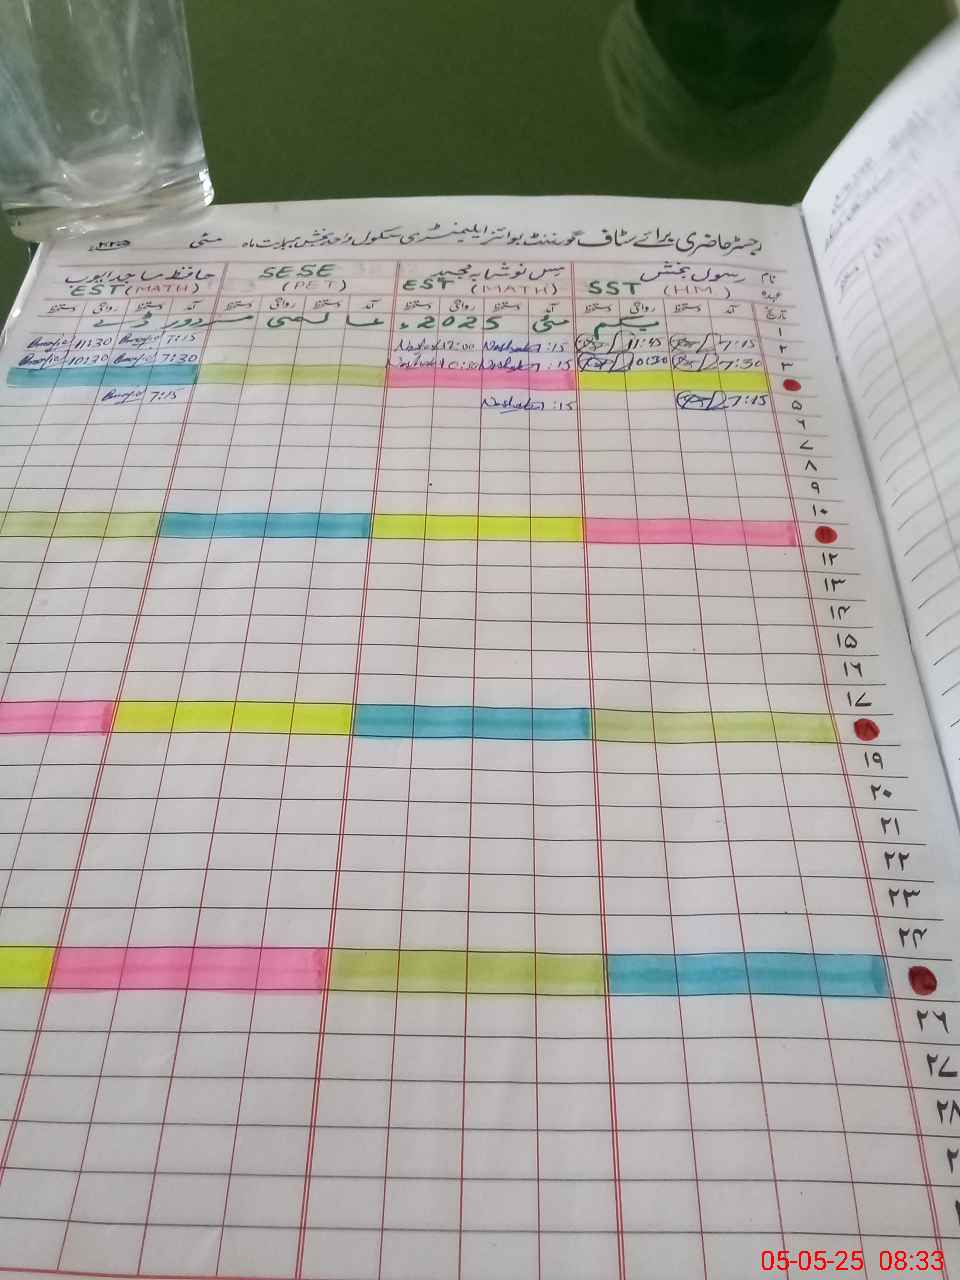 رجسٹر حاضری برائے سٹاف گورنمنٹ بوائز ایلیمنٹری سکول واحد بخش بابت ماہ مئی
نام رسول بخش مس نوشابہ مجید SESE حافظ ساجد ایوب
عہدہ SST (HM) EST (MATH) (PET) EST (MATH)
تاریخ آمد دستخط روانگی دستخط آمد دستخط روانگی دستخط آمد دستخط روانگی دستخط آمد دستخط روانگی دستخط
۱ یکم مئی 2025ء عالمی مزدور ڈے
۲ 7:15 11:45 7:15 12:00 7:15 11:30
۳ 7:30 10:30 7:15 10:30 7:30 10:30
۵ 7:15 7:15 7:15
۶
۷
۸
۹
۱۰
۱۱
۱۲
۱۳
۱۴
۱۵
۱۶
۱۷
۱۸
۱۹
۲۰
۲۱
۲۲
۲۳
۲۴
۲۶
۲۷
۲۸
05-05-25 08:33